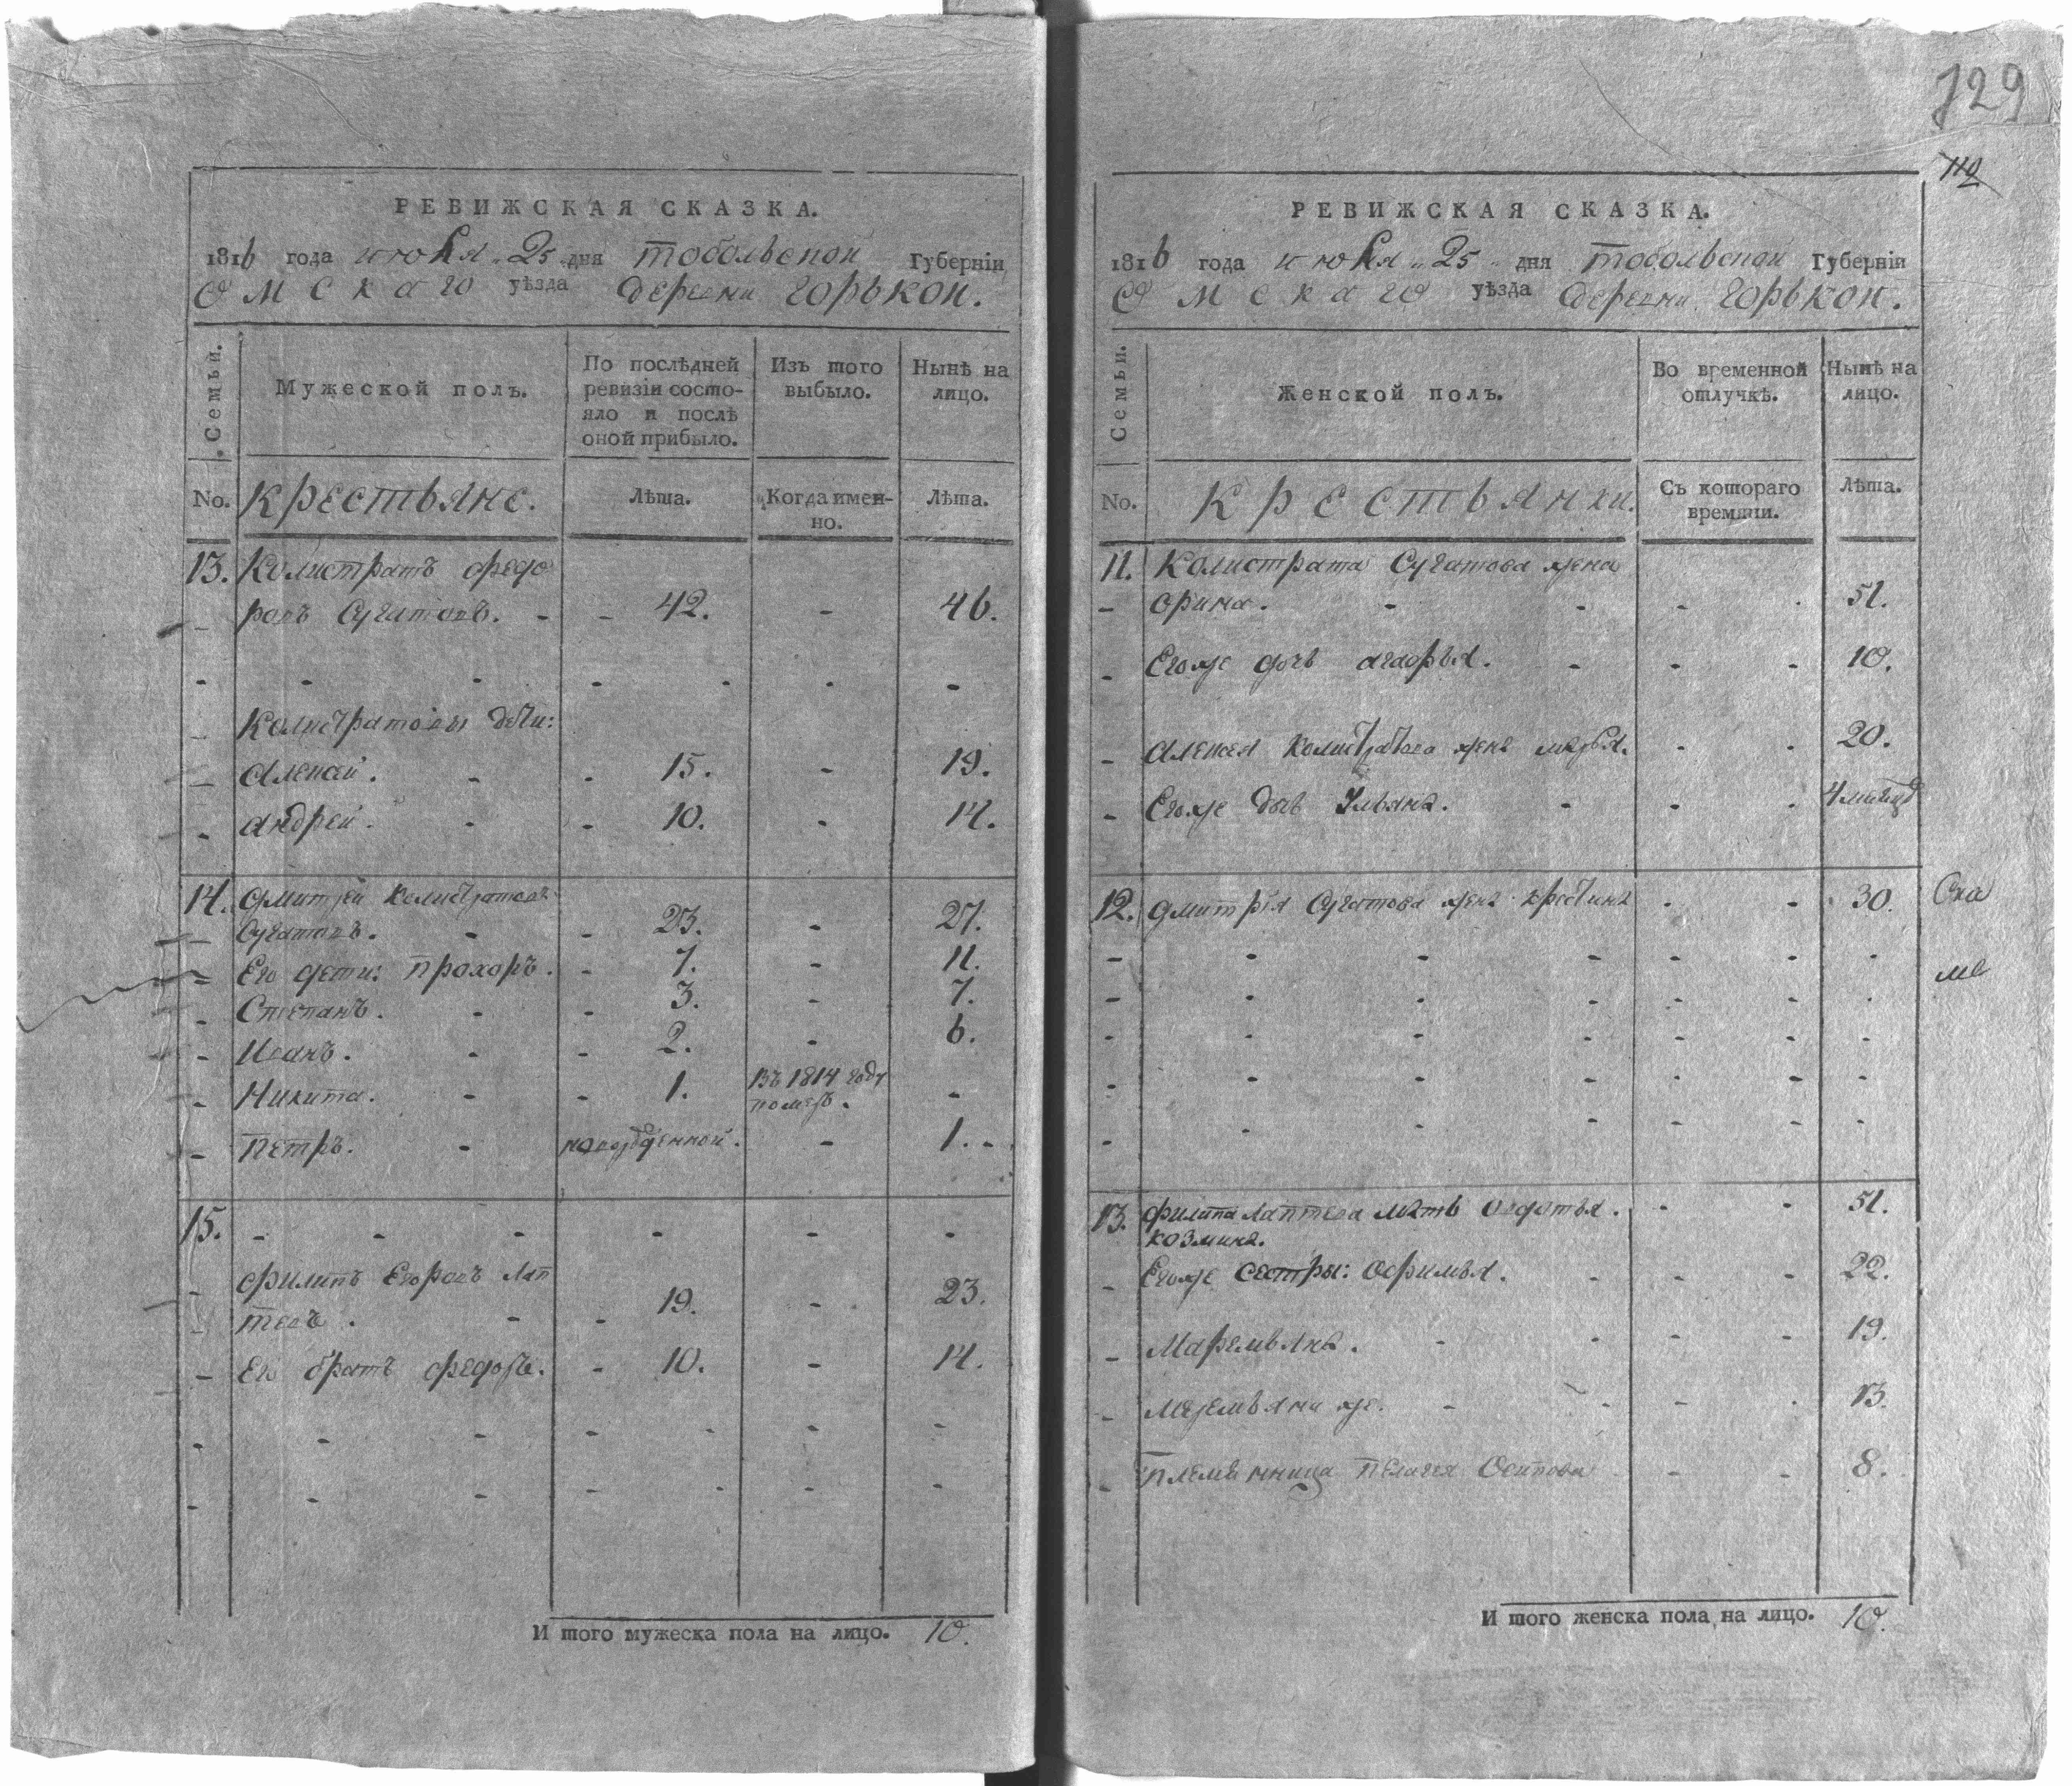 РЕВИЖСКАЯ СКАЗКА.
1816 года июля 25 дня тобольской Губерніи
Омскаго уѣзда деревни горькой.
Семьи. Мужеской полъ. По послѣдней ревизіи состояло и послѣ оной прибыло. Изъ того выбыло. Нынѣ на лицо.
No. крестьяне. Лѣта. Когда именно. Лѣта.
13. Колистратъ федо
ровъ Сугатовъ. - - 42. - 46.
Колистратовы дѣти:
Алексей. - - 15. - 19.
андрей. - - 10. - 14.
14. дмитрей Колистратовъ
Сугатовъ. - - 23. - 27.
Его дети: прохоръ. - 7. - 11.
Степанъ. - - 3. - 7.
Иванъ. - - 2. - 6.
Никита. - - 1. въ 1814 году померъ. -
петръ. - новорожденной. - 1. -
15. - - - - - -
филипъ Егоровъ лап
тевъ. - - 19. - 23.
Его братъ федоръ. - 10. - 14.
И того мужеска пола на лицо. 10.
729
110
РЕВИЖСКАЯ СКАЗКА.
1816 года июля 25 дня тобольской Губерніи
Омскаго уѣзда деревни горькой.
Семьи. Женской полъ. Во временной отлучкѣ. Нынѣ на лицо.
No. крестьянки. Съ котораго времяни. Лѣта.
11. Колистрата Сугатова жена
орина. - - - - 51.
Егоже дочь агафья. - - - 10.
Алексея Колистратова жена марья. - - 20.
Егоже дочь Ульяна. - - - 4 месяцо
12. дмитрія Сугатова жена крестина - - 30.
Ска
ме
13. филипа лаптева мать овдотья - - 51.
козмина.
Егоже сестры: офимья. - - - 22.
Маремьяна. - - - - 19.
Маремьяна же. - - - - 13.
племянница пелагея Осипова - - 8.
И того женска пола на лицо. 10.